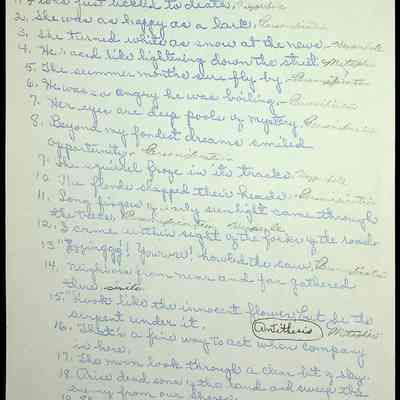 1. I was just tickled to death. Hyperbole
2. She was as happy as a lark.
3. She turned white as snow at the news. Hyperbole
4. He raced like lightning down the street. Metaphor
5. The summer months sure fly by. Personification
6. He was so angry he was boiling.
7. Her eyes are deep pools of mystery.
8. Beyond my fondest dreams smiled
opportunity. Personification
9. The squirrel froze in its tracks. Hyperbole
10. The flowers nodded their heads Personification
11. Long fingers of early sunlight came through
the trees.
12. I came within sight of the forks of the road
13. "Zzinggg! Yowww! howled the saw, Personification
14. Neighbors from near and far gathered
there simile
15. "Look like the innocent flower, but be the
serpent under it. Antithesis Metaphor
16. That's a fine way to act when company
is here.
17. The moon look through a clear bit of sky.
18. Arise dead sons of the land and sweep the
enemy from our shores
19.